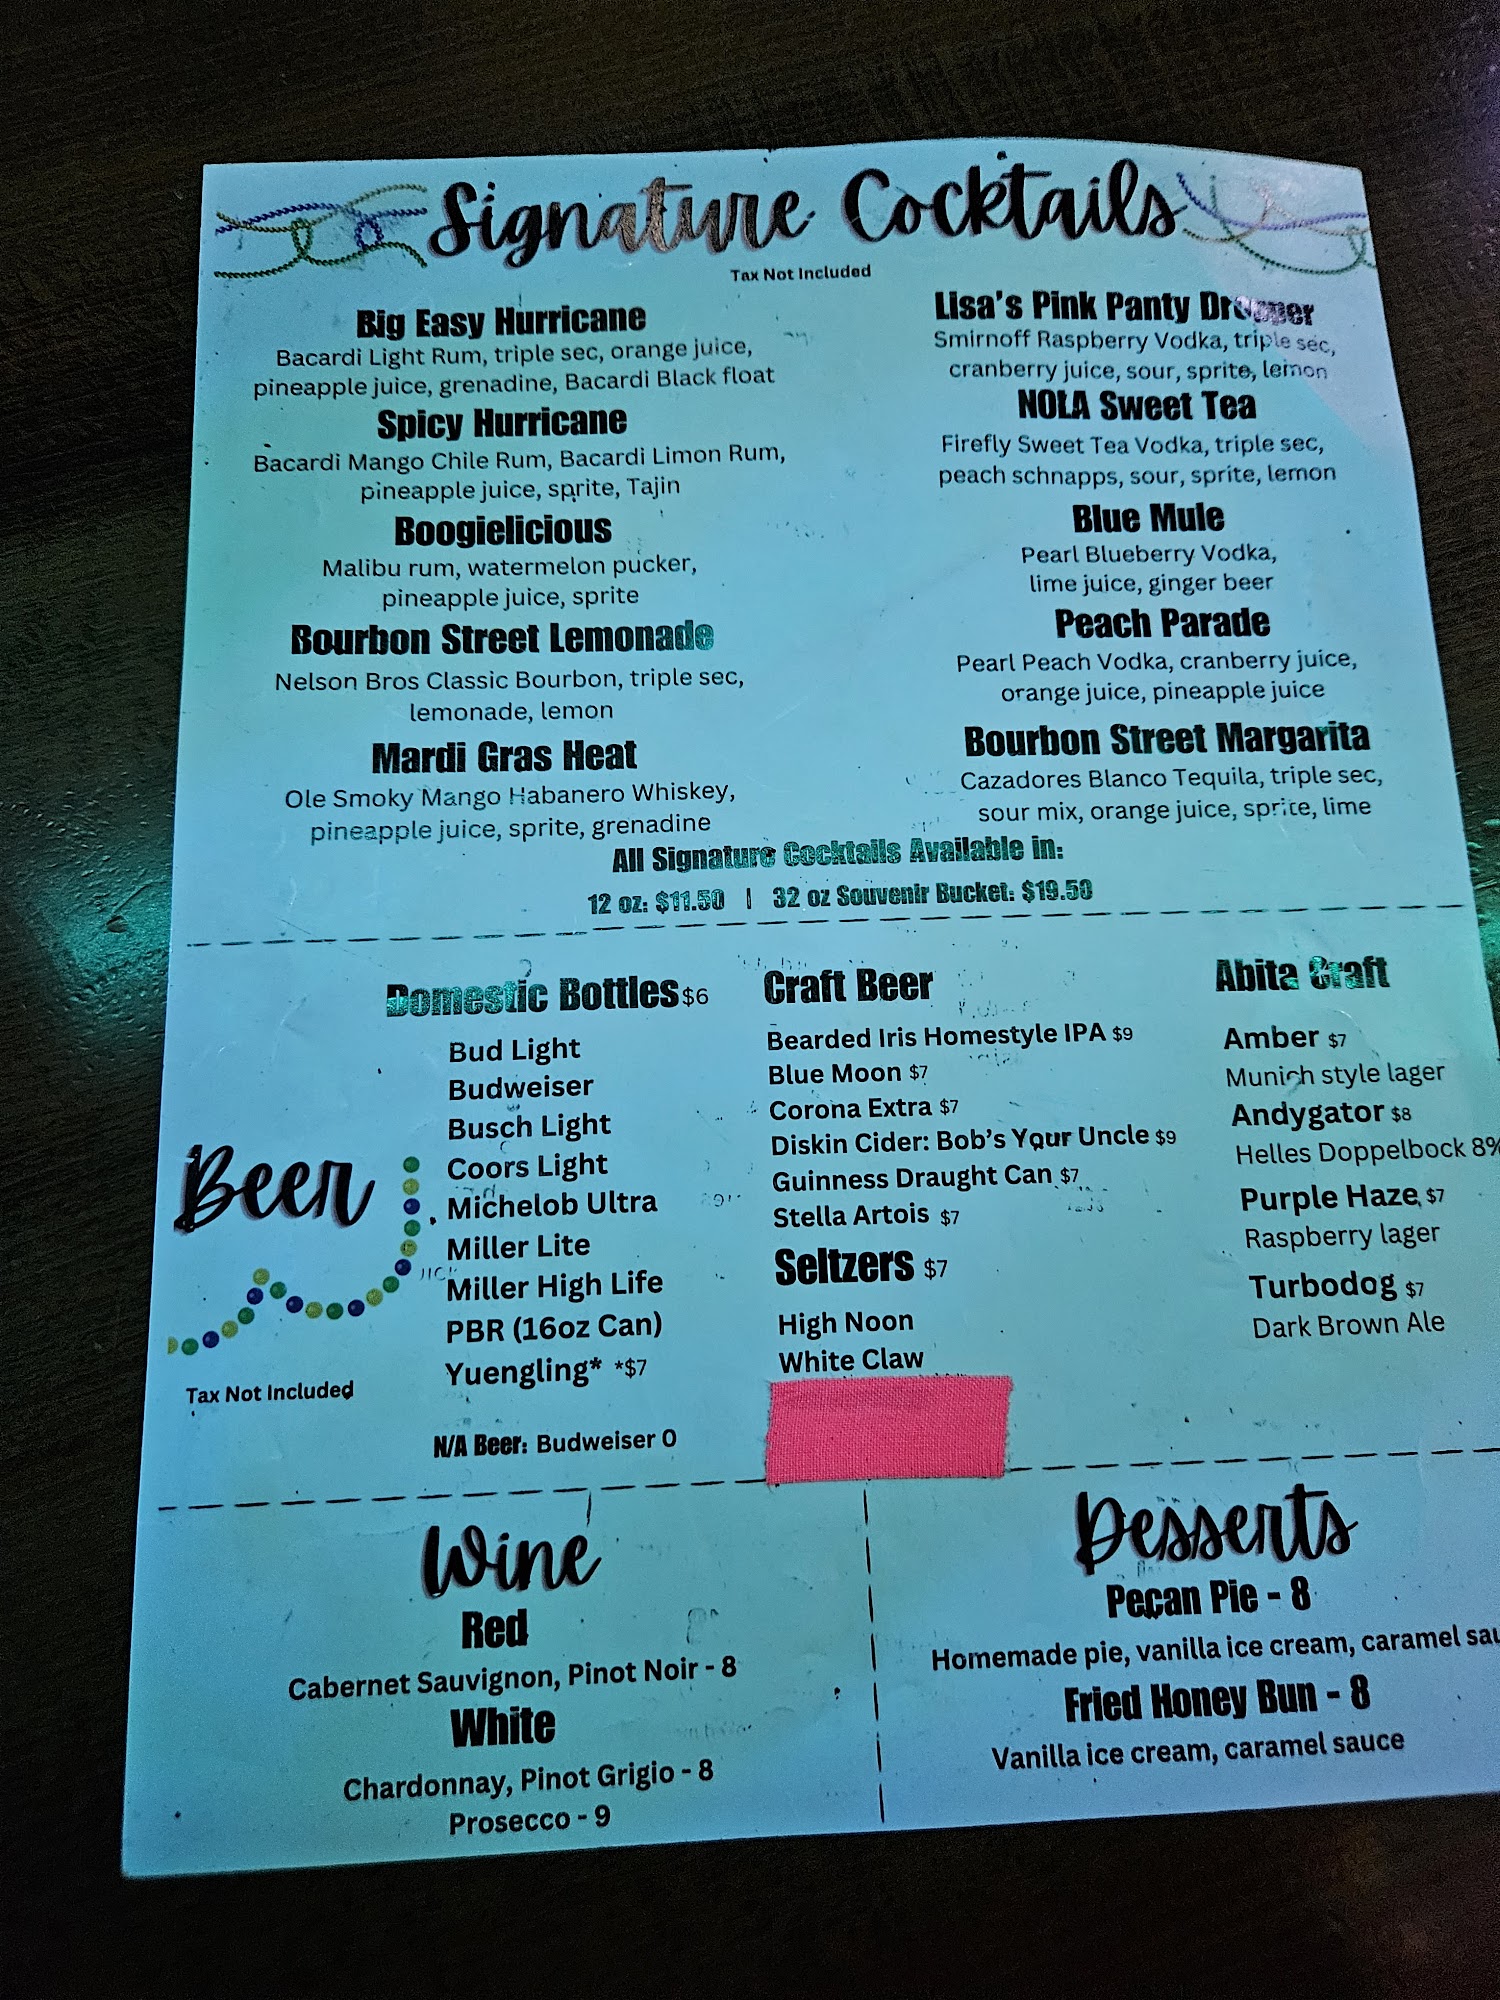 Signature Cocktails
Tax Not Included
Big Easy Hurricane
Bacardi Light Rum, triple sec, orange juice,
pineapple juice, grenadine, Bacardi Black float
Spicy Hurricane
Bacardi Mango Chile Rum, Bacardi Limon Rum,
pineapple juice, sprite, Tajin
Boogielicious
Malibu rum, watermelon pucker,
pineapple juice, sprite
Bourbon Street Lemonade
Nelson Bros Classic Bourbon, triple sec,
lemonade, lemon
Mardi Gras Heat
Ole Smoky Mango Habanero Whiskey,
pineapple juice, sprite, grenadine
Lisa's Pink Panty
Smirnoff Raspberry Vodka, triple sec,
cranberry juice, sour, sprite, lemon
NOLA Sweet Tea
Firefly Sweet Tea Vodka, triple sec,
peach schnapps, sour, sprite, lemon
Blue Mule
Pearl Blueberry Vodka,
lime juice, ginger beer
Peach Parade
Pearl Peach Vodka, cranberry juice,
orange juice, pineapple juice
Bourbon Street Margarita
Cazadores Blanco Tequila, triple sec,
sour mix, orange juice, sprite, lime
All Signature Cocktails Available in:
12 oz: $11.50 | 32 oz Souvenir Bucket: $19.50
Beer
Tax Not Included
Domestic Bottles $6
Bud Light
Budweiser
Busch Light
Coors Light
Michelob Ultra
Miller Lite
Miller High Life
PBR (16oz Can)
Yuengling* *$7
N/A Beer: Budweiser 0
Craft Beer
Bearded Iris Homestyle IPA $9
Blue Moon $7
Corona Extra $7
Diskin Cider: Bob's Your Uncle $9
Guinness Draught Can $7
Stella Artois $7
Seltzers $7
High Noon
White Claw
Abita Craft
Amber $7
Munich style lager
Andygator $8
Helles Doppelbock 8%
Purple Haze $7
Raspberry lager
Turbodog $7
Dark Brown Ale
Wine
Red
Cabernet Sauvignon, Pinot Noir - 8
White
Chardonnay, Pinot Grigio - 8
Prosecco - 9
Desserts
Pecan Pie - 8
Homemade pie, vanilla ice cream, caramel sau
Fried Honey Bun - 8
Vanilla ice cream, caramel sauce